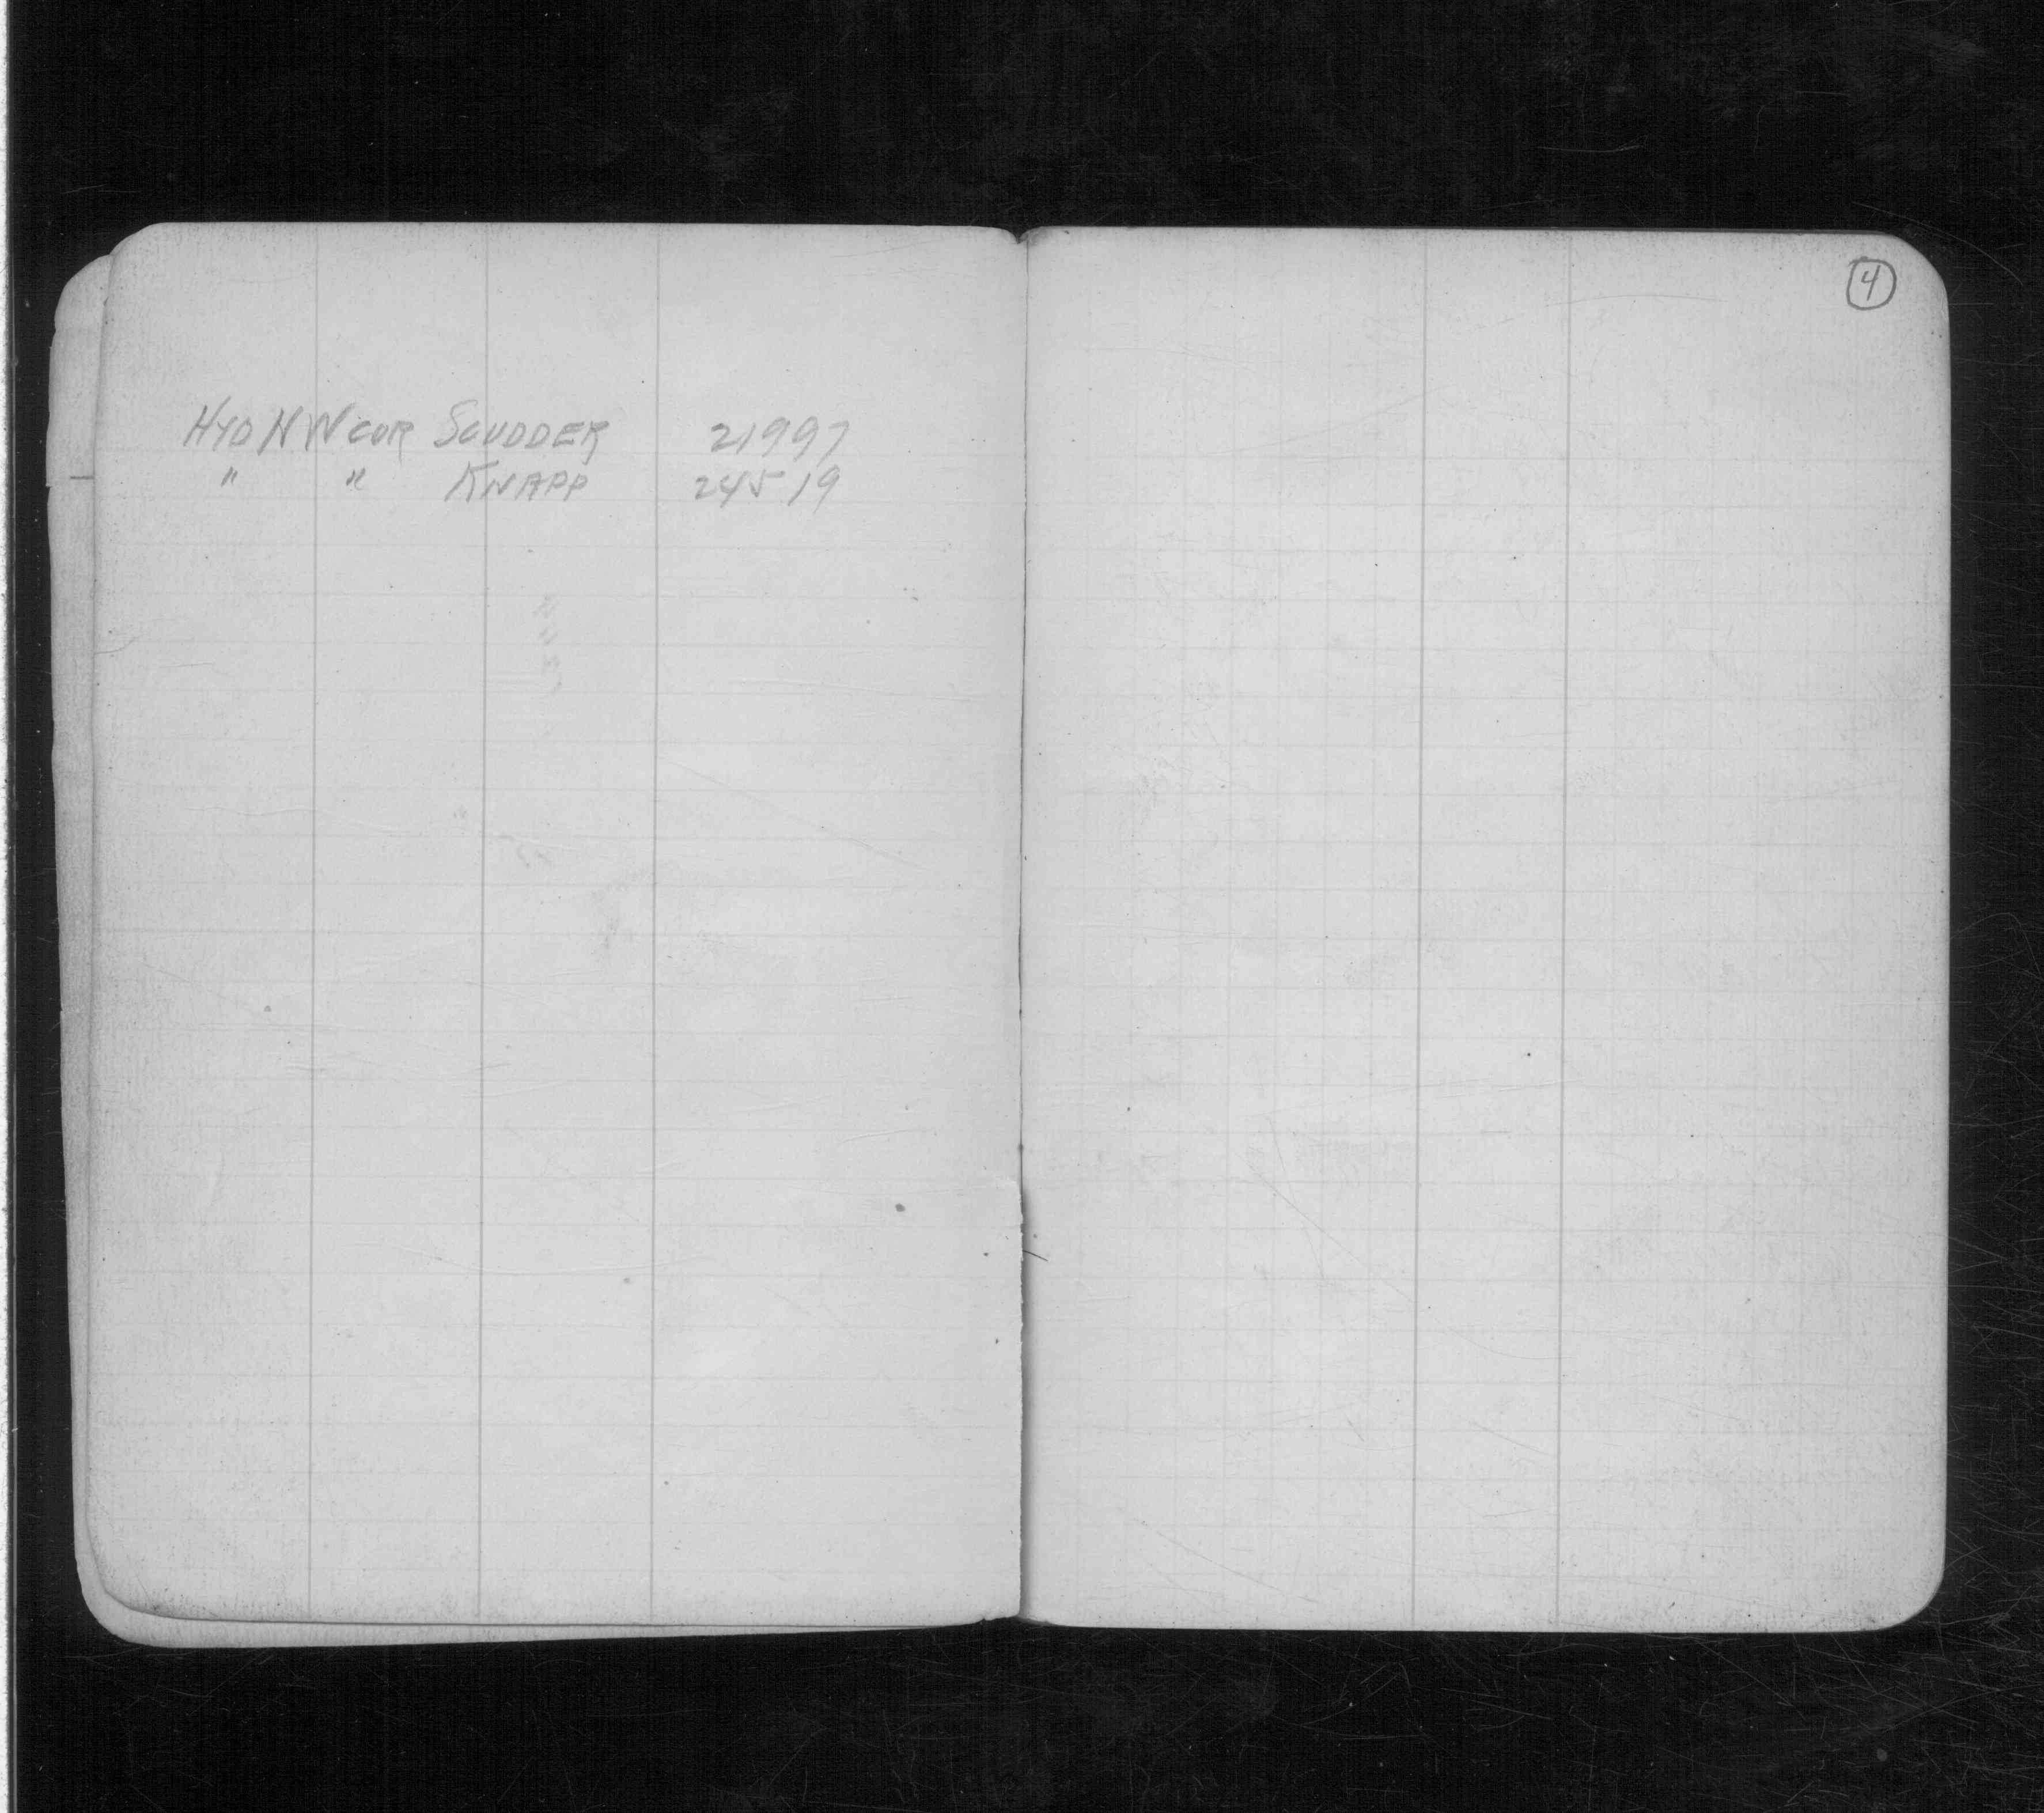 HYD N W COR SCUDDER 21997
" " KNAPP 24519
4